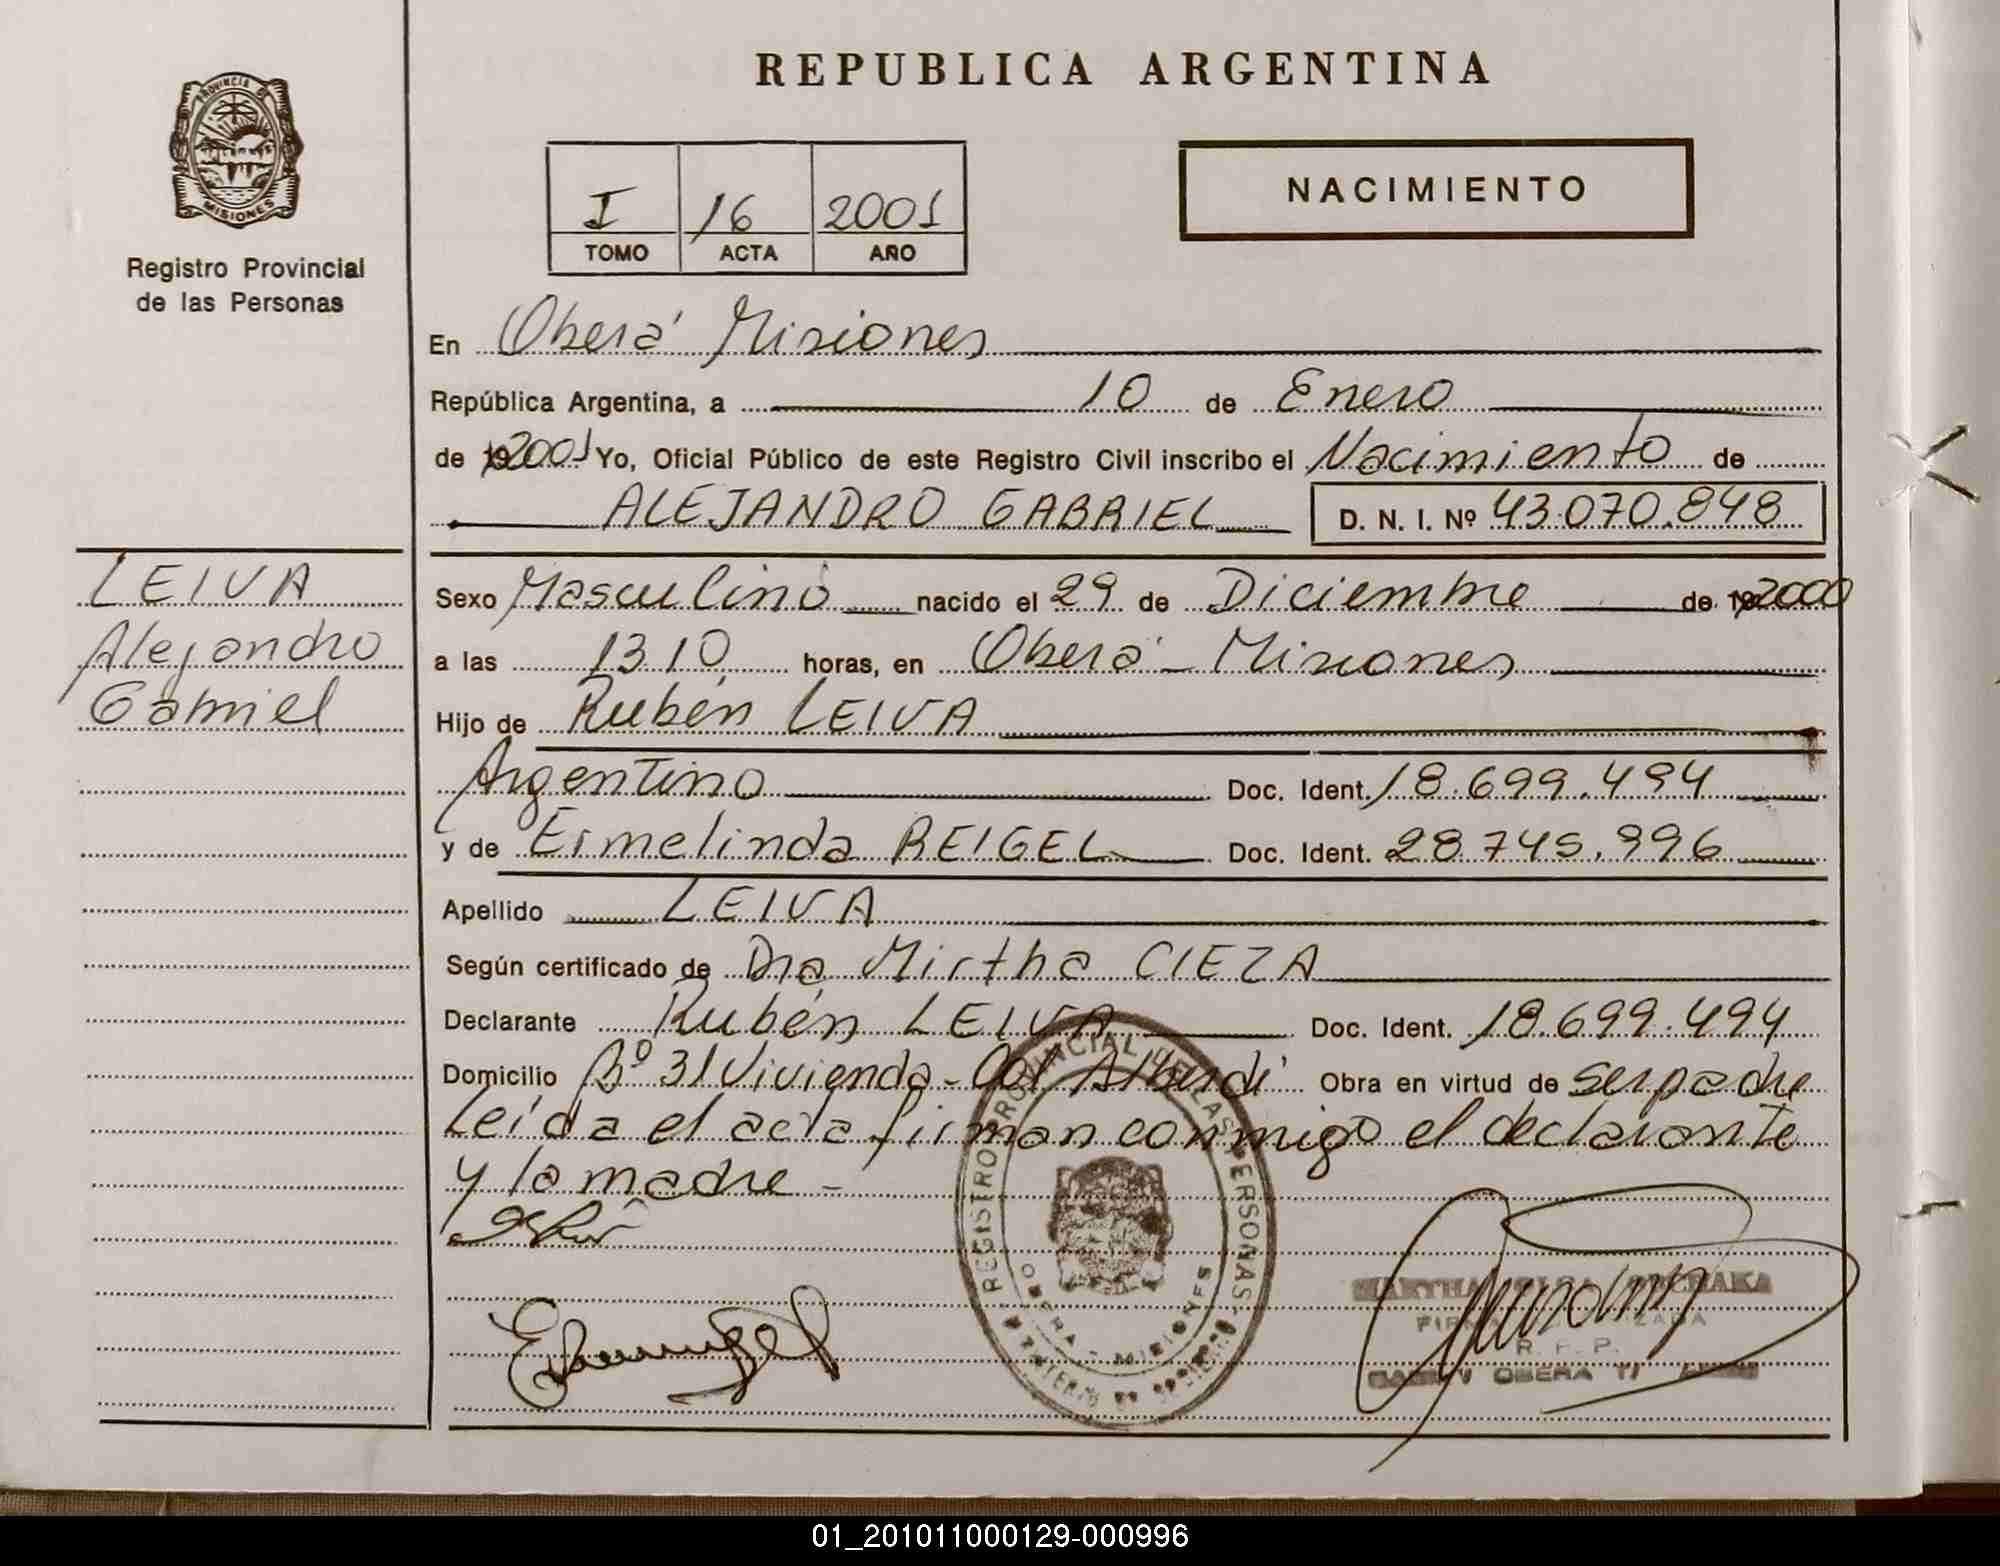 REPUBLICA ARGENTINA
PROVINCIA DE
MISIONES
Registro Provincial
de las Personas
I 16 2001
TOMO ACTA AÑO
NACIMIENTO
En Oberá Misiones
República Argentina, a 10 de Enero
de 2001 Yo, Oficial Público de este Registro Civil inscribo el Nacimiento de
ALEJANDRO GABRIEL D. N. I. Nº 43.070.848
LEIVA
Alejandro
Gabriel
Sexo Masculino nacido el 29 de Diciembre de 2000
a las 13.10 horas, en Oberá - Misiones
Hijo de Rubén LEIVA
Argentino Doc. Ident. 18.699.494
y de Ermelinda REIGEL Doc. Ident. 28.745.996
Apellido LEIVA
Según certificado de Dra Mirtha CIEZA
Declarante Rubén LEIVA Doc. Ident. 18.699.494
Domicilio Bº 31 Vivienda - Col Alberdi Obra en virtud de ser padre
Leída el acta firman conmigo el declarante
y la madre -
REGISTRO PROVINCIAL DE LAS PERSONAS
OBERA - MISIONES
R. P. P.
OBERA
01_201011000129-000996